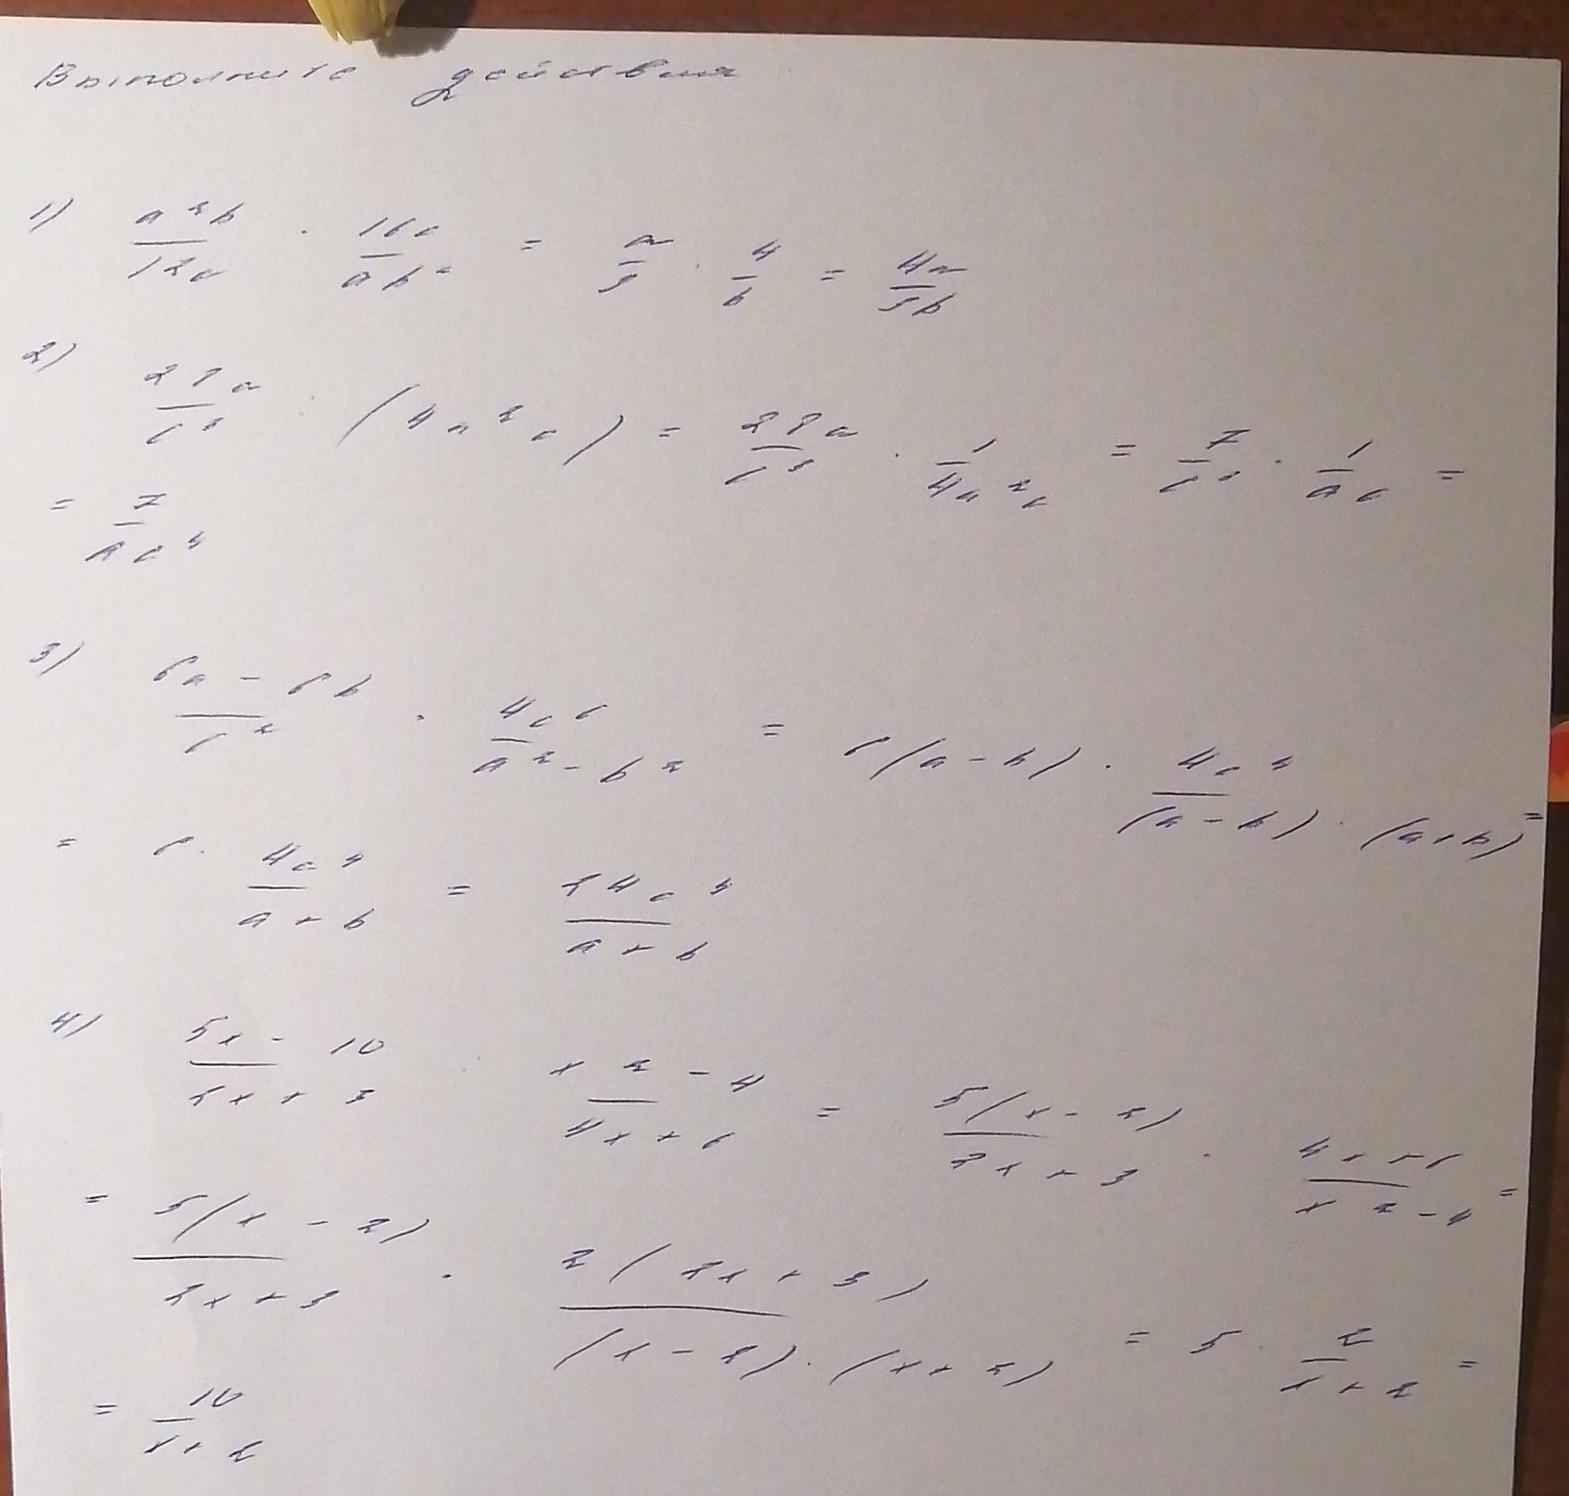 Выполните действия
1) a²b/12c · 16c/ab² = a/3 · 4/b = 4a/3b
2) 28a/c³ : (4a²c) = 28a/c³ · 1/4a²c = 7/c³ · 1/ac =
= 7/ac⁴
3) 6a - 6b/c² · 4c⁶/a² - b² = 6(a - b) · 4c⁴/(a - b) · (a + b) =
= 6 · 4c⁴/a + b = 24c⁴/a + b
4) 5x - 10/2x + 3 : x² - 4/4x + 6 = 5(x - 2)/2x + 3 · 4x + 6/x² - 4 =
= 5(x - 2)/2x + 3 · 2(2x + 3)/(x - 2) · (x + 2) = 5 · 2/x + 2 =
= 10/x + 2